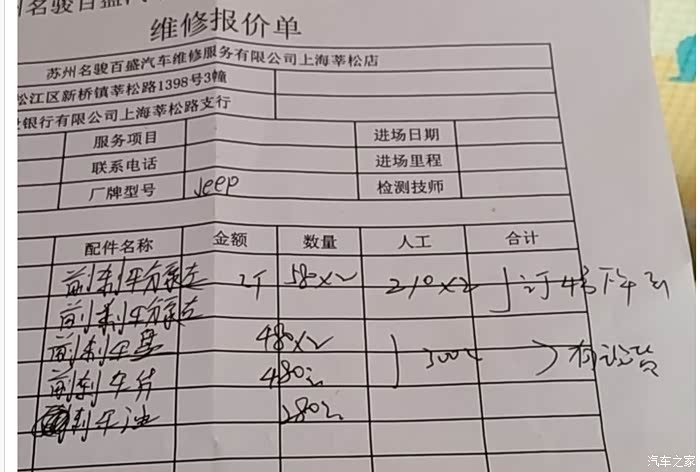 名骏百盛汽
维修报价单
苏州名骏百盛汽车维修服务有限公司上海莘松店
松江区新桥镇莘松路1398号3幢
银行有限公司上海莘松路支行
服务项目 进场日期
联系电话 进场里程
厂牌型号 Jeep 检测技师
配件名称 金额 数量 人工 合计
前刹车分泵左 580×2 210×2
前刹车分泵左
前刹车盘 480×2
前刹车片 480元 300元
刹车油 280元
汽车之家